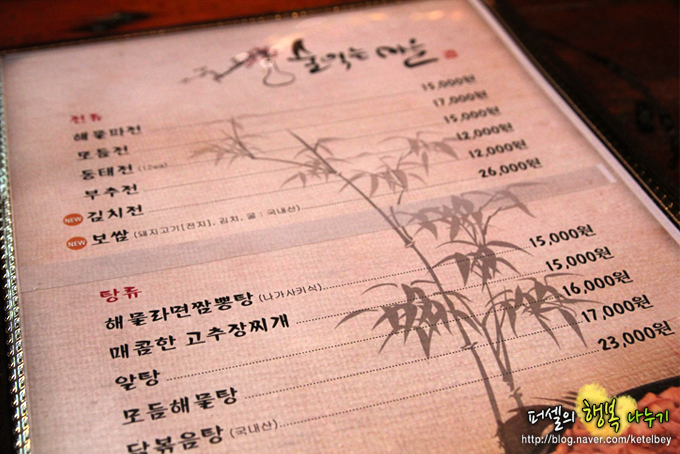 술익는마을
전류
해물파전 15,000원
모듬전 17,000원
동태전 (12ea) 15,000원
부추전 12,000원
NEW 김치전 12,000원
NEW 보쌈 (돼지고기[전지], 김치, 굴 : 국내산) 26,000원
탕류
해물라면짬뽕탕 (나가사키식) 15,000원
매콤한 고추장찌개 15,000원
알탕 16,000원
모듬해물탕 17,000원
닭볶음탕 (국내산) 23,000원
퍼셀의 행복 나누기
http://blog.naver.com/ketelbey